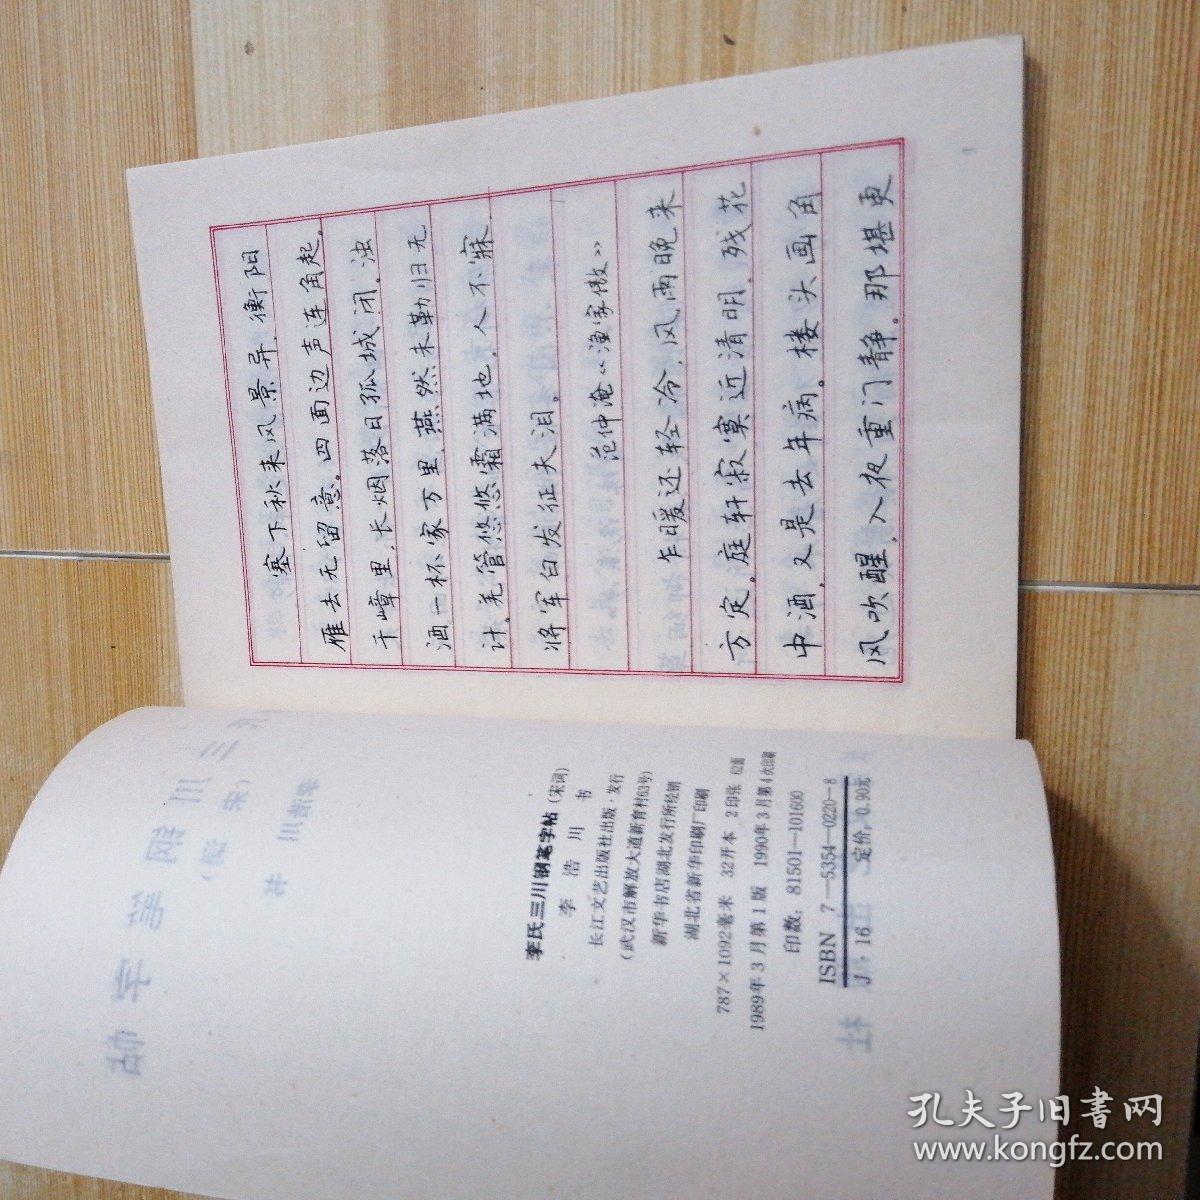 李氏三川钢笔字帖(宋词)
李浩川 书
长江文艺出版社出版·发行
(武汉市解放大道新育村63号)
新华书店湖北发行所经销
湖北省新华印刷厂印刷
787×1092毫米 32开本 2印张 62面
1989年3月第1版 1990年3月第4次印刷
印数:81501—101600
ISBN 7—5354—0220—8
J·16 定价:0.90元
塞下秋来风景异,衡阳
雁去无留意。四面边声连角起。
千嶂里,长烟落日孤城闭。浊
酒一杯家万里,燕然未勒归无
计。羌管悠悠霜满地,人不寐,
将军白发征夫泪。
范仲淹《渔家傲》
乍暖还轻冷,风雨晚来
方定。庭轩寂寞近清明,残花
中酒,又是去年病。楼头画角
风吹醒,入夜重门静。那堪更
1
孔夫子旧书网
www.kongfz.com